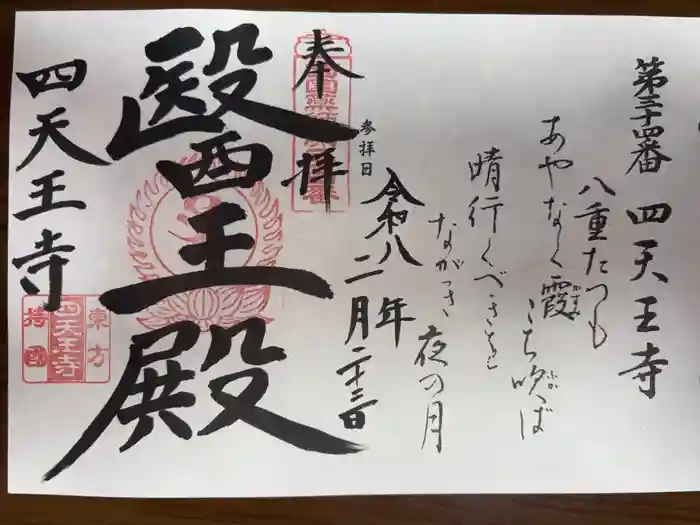 第三十四番 四天王寺
八重たつも
あやなく霞
こち吹ば
晴行くべきを
ながつき
夜の月
奉拝
参拝日
令和八年
二月二十三日
醫王殿
四天王寺
東方
四天王寺